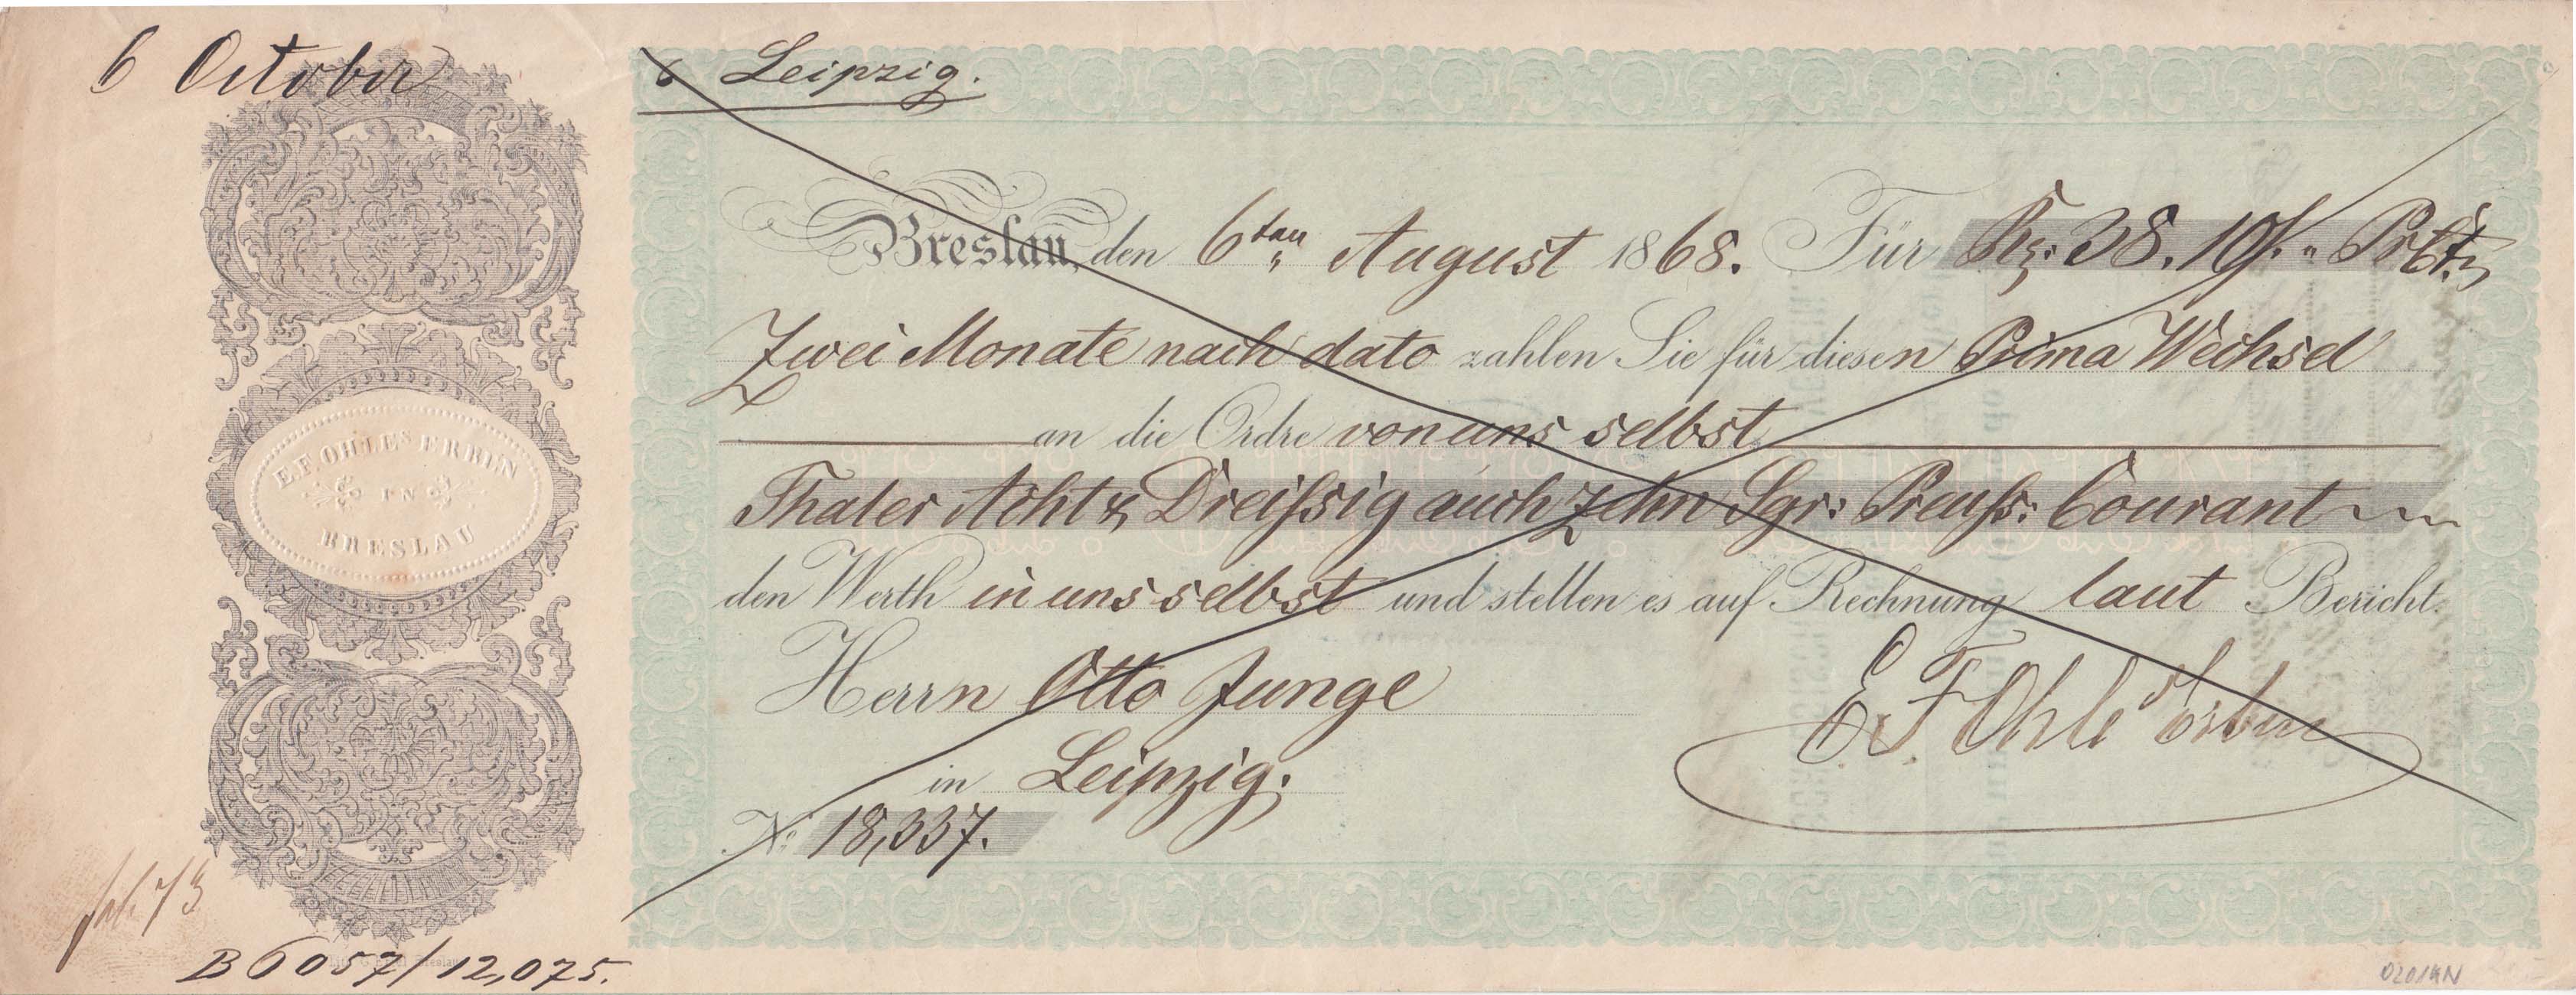 6 October
Leipzig.
Breslau, den 6ten August 1868. Für 38. 10
Zwei Monate nach dato zahlen Sie für diesen Prima Wechsel
an die Ordre von uns selbst
Thaler Acht & Dreißig auch zehn Sgr: Preuß: Courant
den Werth in uns selbst und stellen es auf Rechnung laut Bericht.
Herrn Otto Junge
in Leipzig.
No 18,337.
E. F. Ohle's Erben
E.F. OHLE'S ERBEN
IN
BRESLAU
B 6057/12,075.